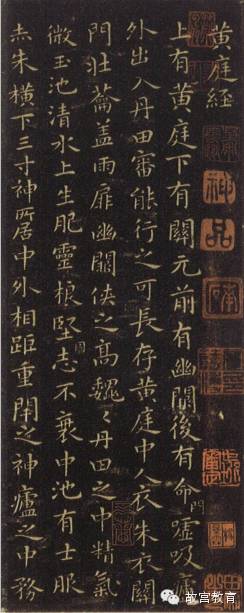 黄庭經
上有黄庭下有關元前有幽闕後有命門噓吸廬
外出入丹田審能行之可長存黄庭中人衣朱衣關
門壯蘥蓋兩扉幽闕俠之高魏〻丹田之中精氣
微玉池清水上生肥靈根堅固志不衰中池有士服
赤朱横下三寸神所居中外相距重閉之神廬之中務
神品
故宫教育